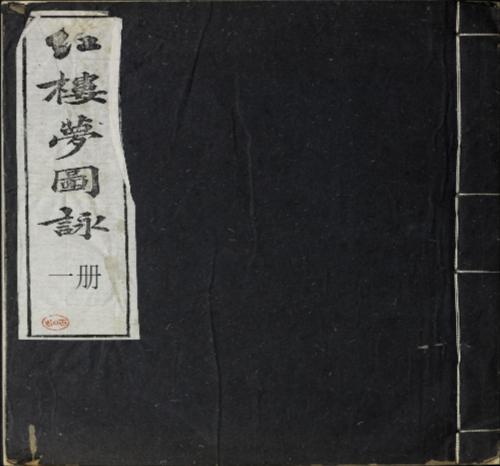 红樓夢圖詠
一册